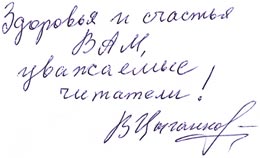 Здоровья и счастья
ВАМ,
уважаемые
читатели!
В Цыганков